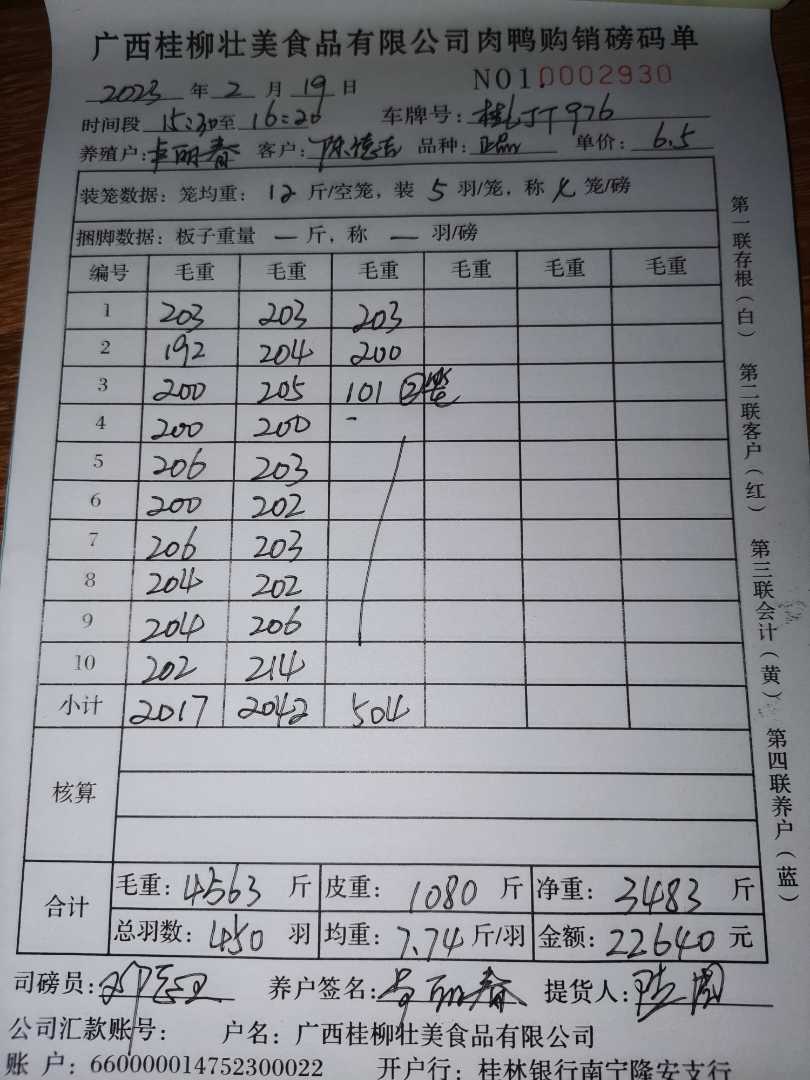 广西桂柳壮美食品有限公司肉鸭购销磅码单
2023 年 2 月 19 日 NO1.0002930
时间段 15:30至 16:20 车牌号: 976
养殖户: 卢丽春 客户: 陈德 品种: 正品 单价: 6.5
装笼数据: 笼均重: 12 斤/空笼, 装 5 羽/笼, 称 笼/磅
捆脚数据: 板子重量 — 斤, 称 — 羽/磅
编号 毛重 毛重 毛重 毛重 毛重 毛重
1 203 203 203
2 192 204 200
3 200 205 101 ②笼
4 200 200 -
5 206 203
6 200 202
7 206 203
8 204 202
9 204 206
10 202 214
小计 2017 2042 504
核算
合计 毛重: 4563 斤 皮重: 1080 斤 净重: 3483 斤
总羽数: 450 羽 均重: 7.74 斤/羽 金额: 22640 元
司磅员: 养户签名: 卢丽春 提货人:
公司汇款账号: 户名: 广西桂柳壮美食品有限公司
账 户: 660000014752300022 开户行: 桂林银行南宁隆安支行
第一联存根(白) 第二联客户(红) 第三联会计(黄) 第四联养户(蓝)